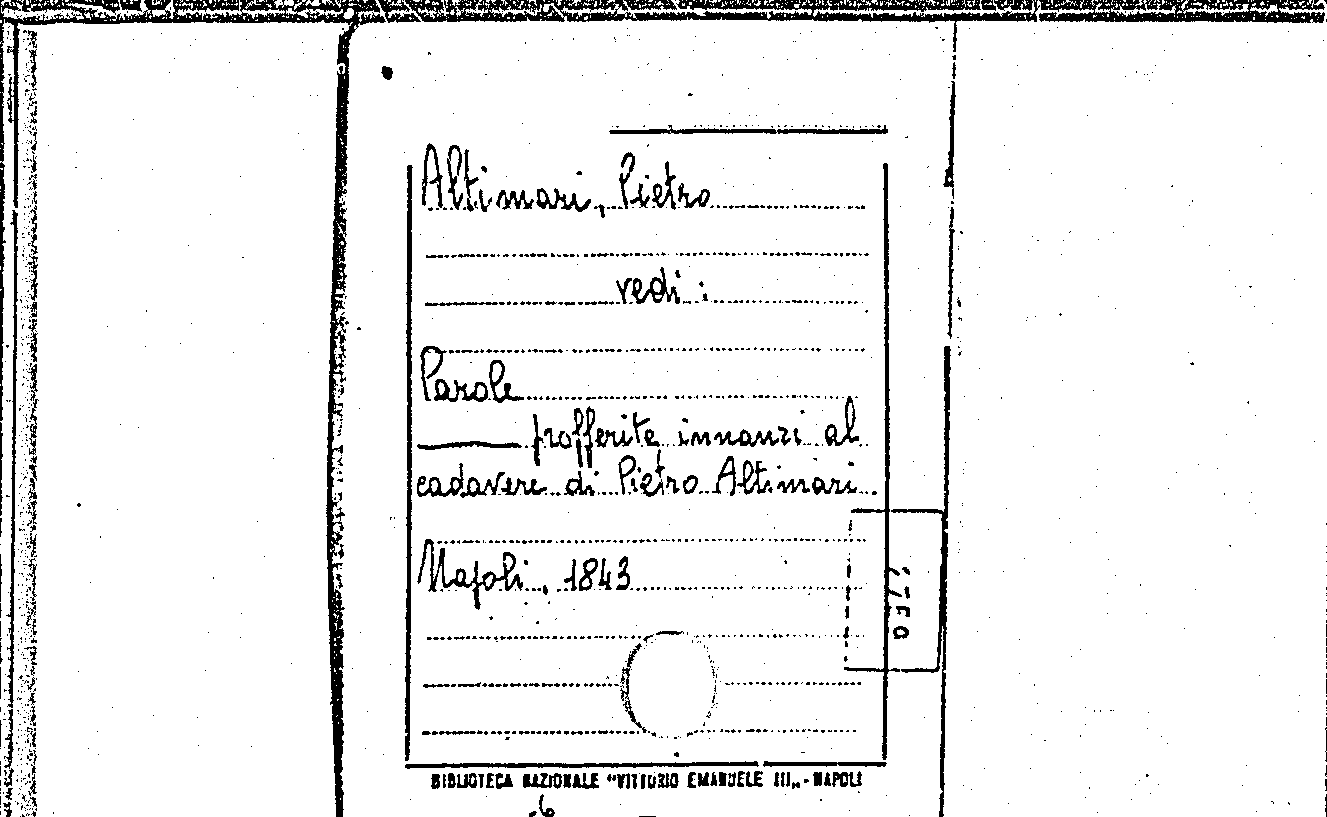 Altimari, Pietro
vedi :
Parole
profferite innanzi al
cadavere di Pietro Altimari.
Napoli, 1843
BIBLIOTECA NAZIONALE "VITTORIO EMANUELE III„ - NAPOLI